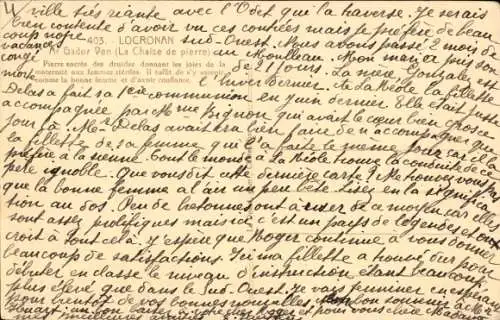 ville très riante avec l'Odet qui la traverse. Je serais
bien contente d'avoir vu ces contrées mais je préfère de beau
coup notre sud-Ouest. Nous avons passé 2 mois de
403. LOCRONAN
Ar Gador Ven (La Chaise de pierre)
Pierre sacrée des druides donnant les joies de la
maternité aux femmes stériles. Il suffit de s'y asseoir
comme la bonne femme et d'avoir confiance.
vacances au Moulleau. Mon mari a pris son
congé de 21 jours. La mère Gonzalès est
morte l'hiver dernier. A La Réole la fillette
Delas a fait sa 1ère communion en juin dernier. Elle était juste
accompagnée par Mme Bignon qui avait le cœur bien gros ce
jour là. Mr Delas avait sa bien faire d'en accompagner que
la fillette de sa femme qui l'a faite le même jour car il la
préfère à la sienne. Tout le monde à La Réole trouve la conduite de ce
père ignoble. Que vous dit cette dernière carte ? Ne trouvez vous pas
que la bonne femme a l'air un peu bête. Lisez en la significa
tion au dos. Peu de bretonnes ont à user de ce moyen car elles
sont assez prolifiques mais ici c'est un pays de légendes et on
croit à tout cela. J'espère que Roger continue à vous donner
beaucoup de satisfactions. Ici ma fillette a trouvé dur pour
débuter en classe le niveau d'instruction étant beaucoup
plus élevé que dans le Sud-Ouest. Je vais terminer en espérant
pour bientôt de vos bonnes nouvelles. Mon bon souvenir à Mr
un bon baiser à votre cher Roger et pour vous chère Madame
mes meilleures